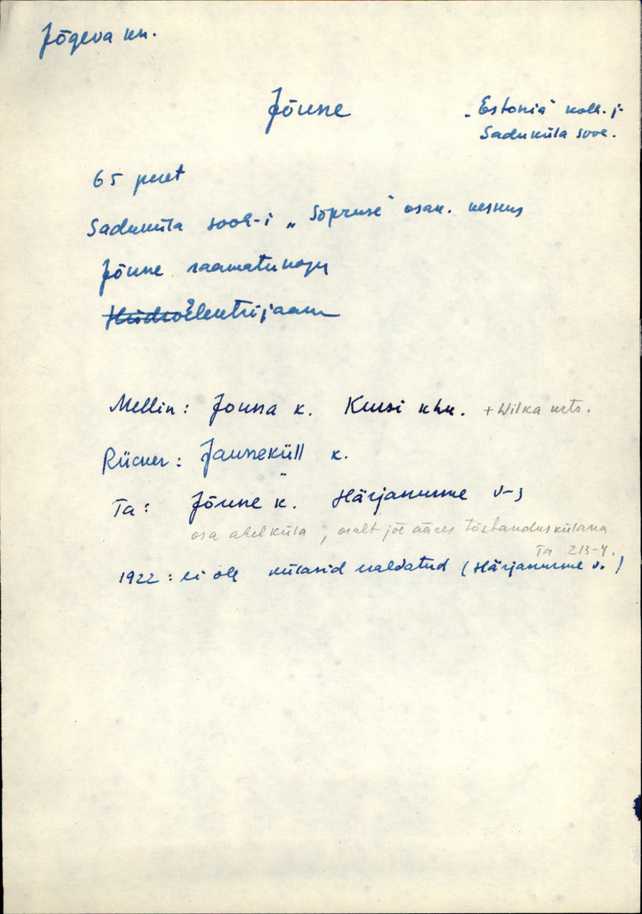 Jõgeva kn.
Jõune
"Estonia" kolh. ja
Saduküla sovh.
65 peret
Saduküla sovh-i "Sõpruse" osak. keskus
Jõune raamatukogu
Hüdroelektrijaam
Mellin: Jouna k. Kursi khk. + Wilka mts.
Rücker: Jauneküll k.
Ta: Jõune k. Härjanurme v-s
osa ahelküla; osalt jõe ääres tööstanduskülana
Ta 213-4.
1922: ei ole külasid naldatud (Härjanurme v.)